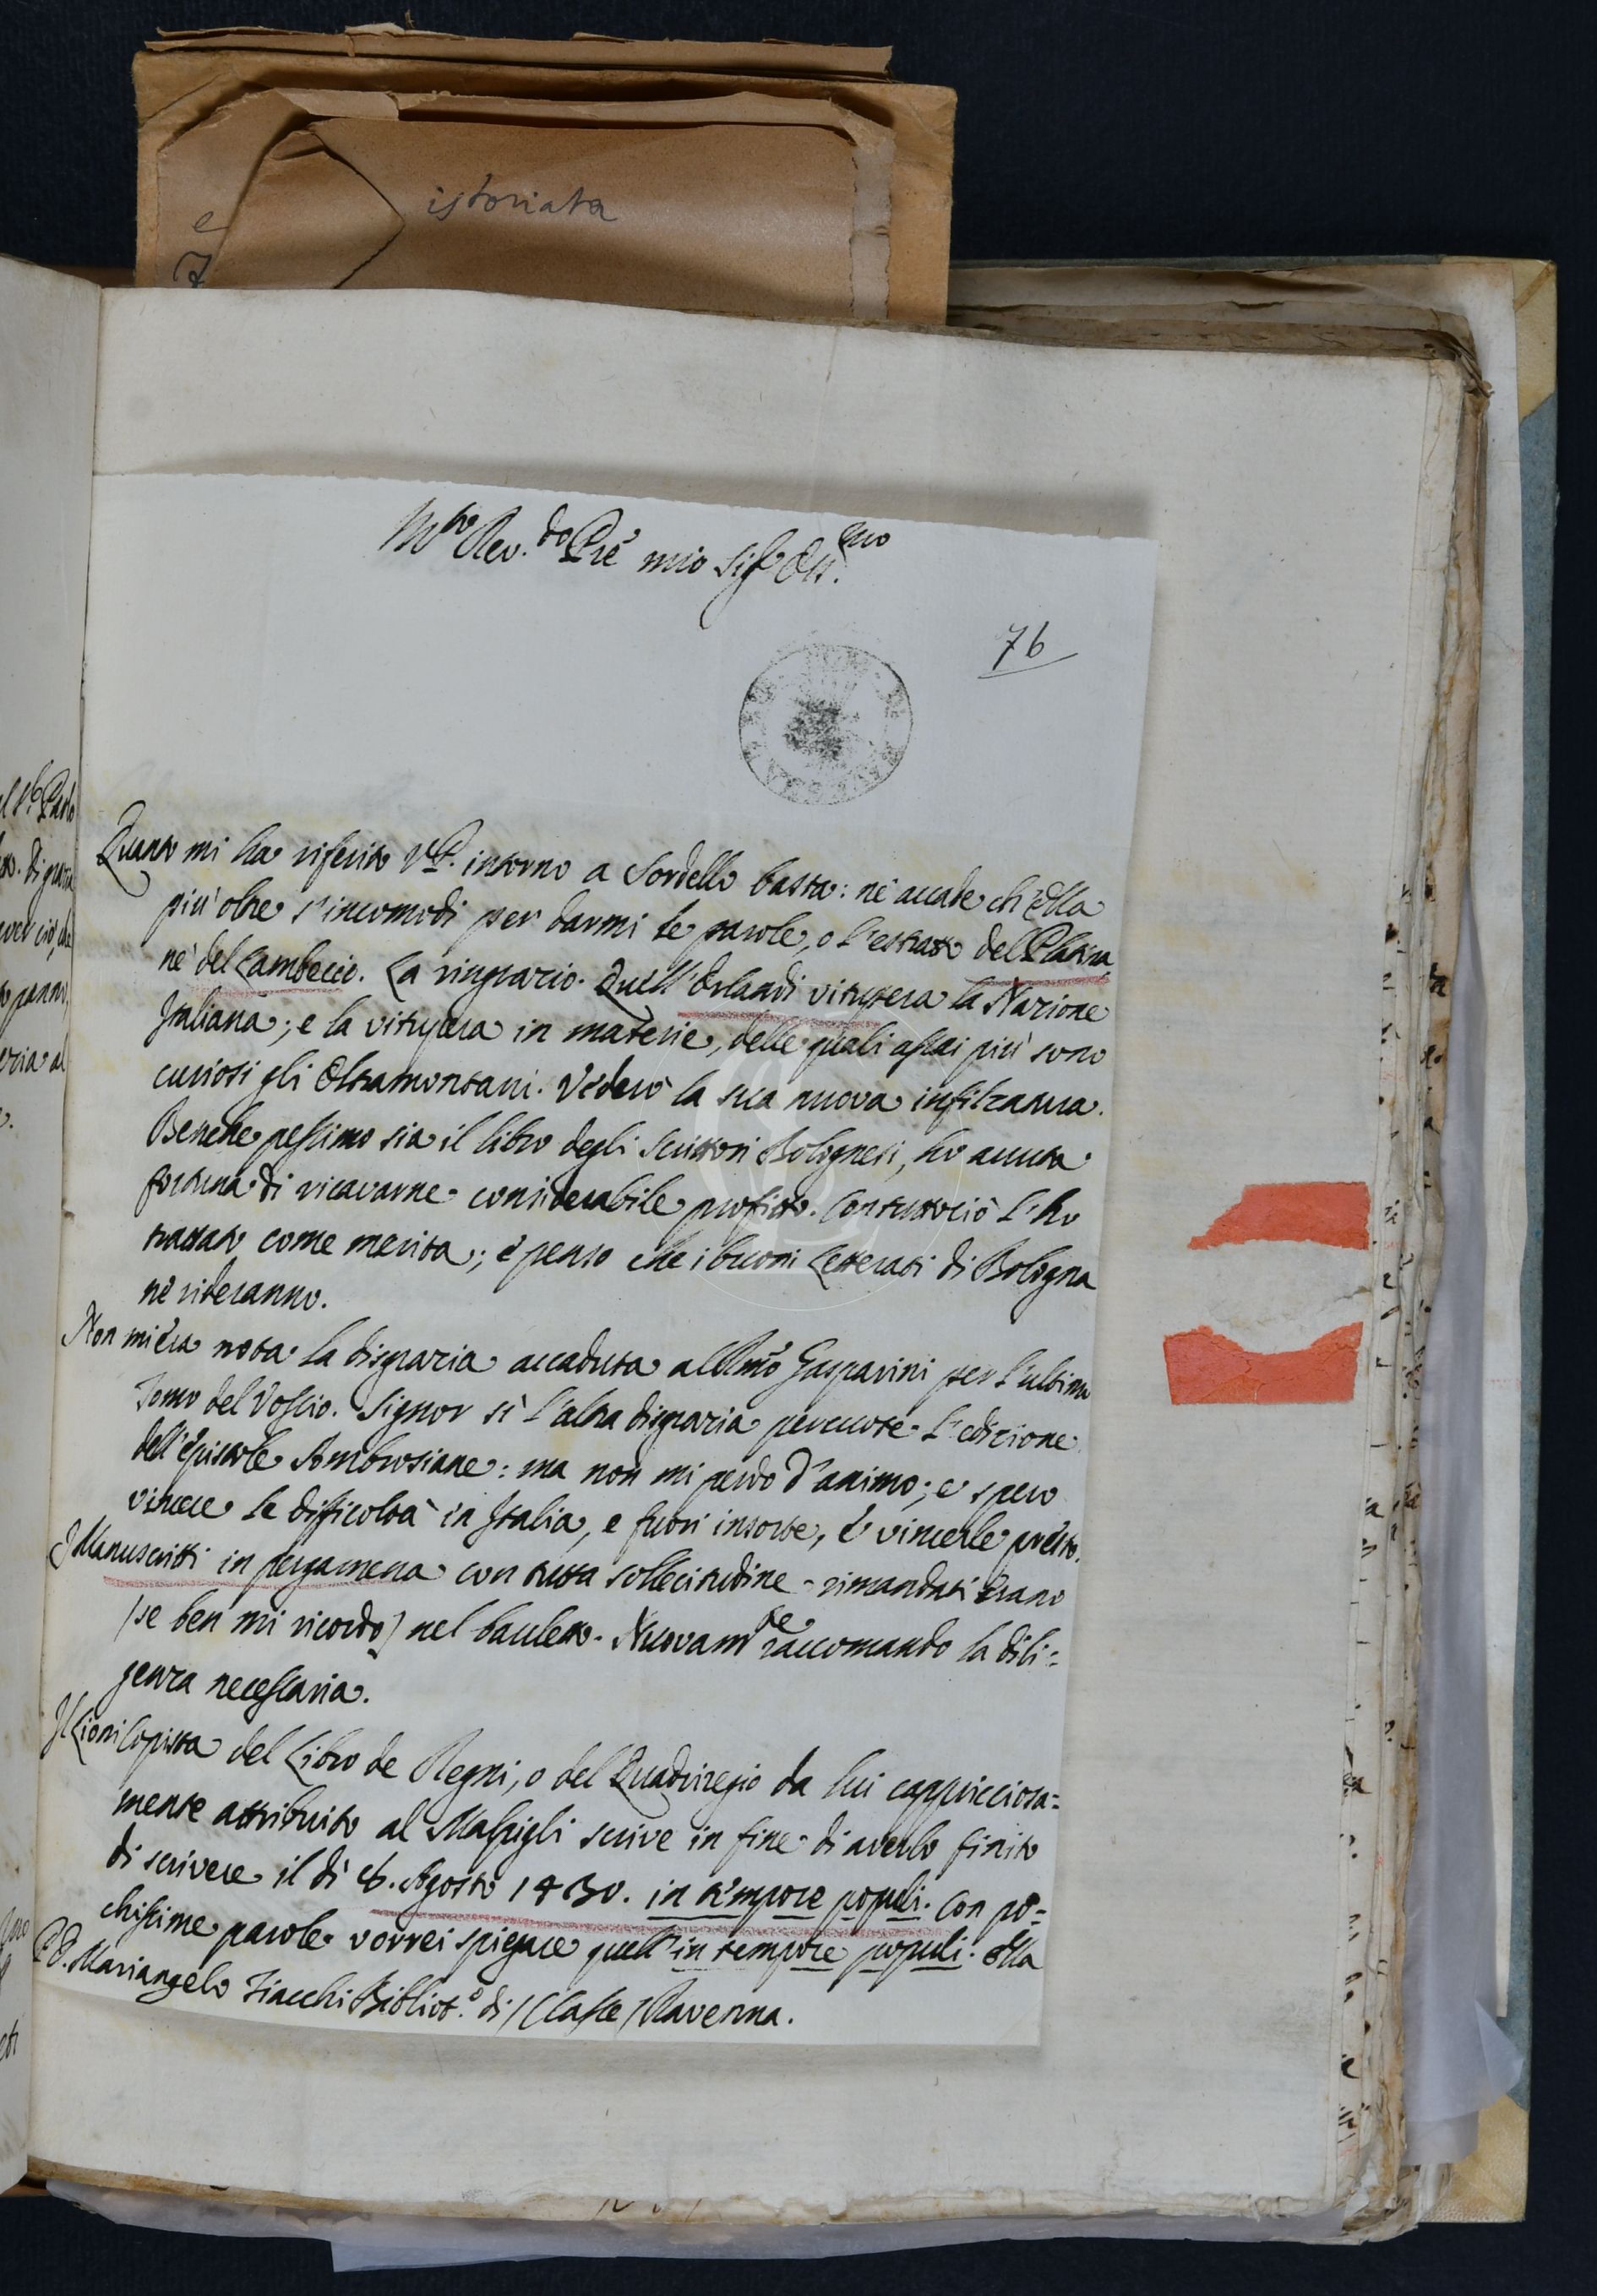 istoriata
M.to Rev.do Pre mio Sig.r Oss.mo
76
Quanto mi ha riferito V.P. intorno a Sordello basta: nè accade ch'Ella
più oltre s'incomodi per darmi le parole, o l'estratto del Platina
nè del Lambecio. La ringrazio. Quell'Orlandi vitupera la Nazione
Italiana; e la vitupera in materie, delle quali assai più sono
curiosi gli Oltramontani. Vederò la sua nuova infilzatura.
Benche pessimo sia il libro degli Scrittori Bolognesi, ho avuta
fortuna di ricavarne considerabile profitto. Contuttociò l'ho
trattato come merita; e penso che i buoni Letterati di Bologna
ne rideranno.
Non mi era nota la disgrazia accaduta all' Gasparini per l'ultimo
Tomo del Vossio. Signor sì l'altra disgrazia percuote l'edizione
dell'Epistole Ambrosiane: ma non mi perdo d'animo; e spero
vincere le difficoltà in Italia, e fuori insorte, e vincerle presto.
I Manuscritti in pergamena con tutta sollecitudine rimandati erano
(se ben mi ricordo) nel bauletto. Nuovam.te raccomando la dili=
genza necessaria.
Il Lioni Copista del Libro de Regni, o del Quadriregio da lui cappricciosa=
mente attribuito al Malpigli scrive in fine di averlo finito
di scrivere il dì 6. Agosto 1430. in tempore populi. Con po=
chissime parole vorrei spiegare quell'in tempore populi. Ella
P.D. Mariangelo Fiacchi Bibliot.o di (Classe) Ravenna.